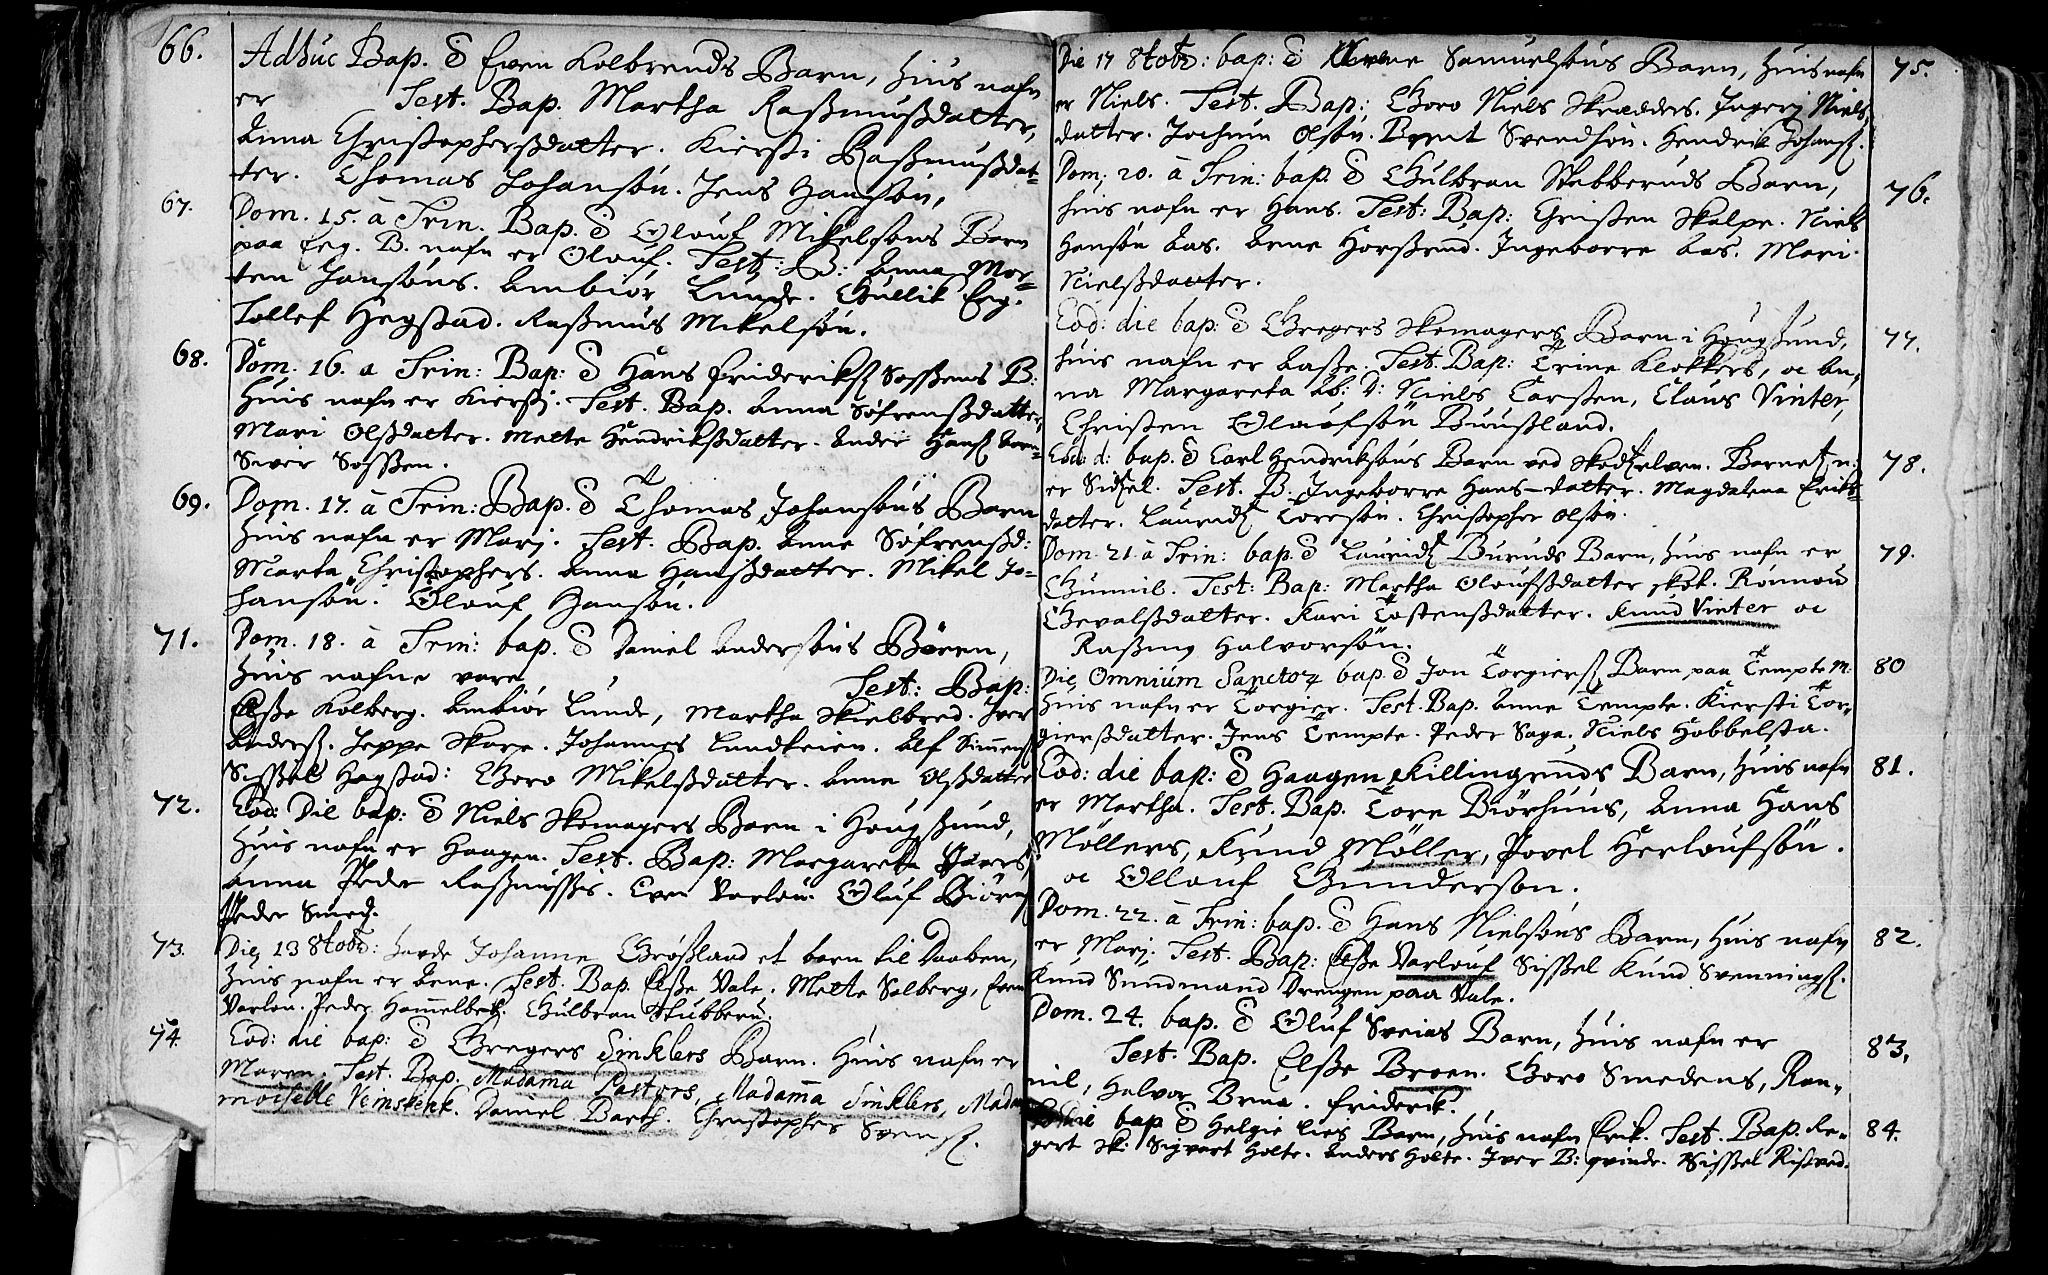 66. Adhuc Bap. Even Kolbrends Barn, huis nafn
er Test. Bap. Martha Rasmusdatter,
Anna Christophersdatter. Kiersti Rasmusdat-
ter. Thomas Johansøn. Jens Hansøn,
67. Dom. 15. à Trin. Bap. Olouf Mikelsøns Barn
paa Eeg. B. nafn er Olouf. Test: B: Anna Mor-
ten Jansøns. Ambiør Lunde. Gullik Eeg.
Tollef Hegstad. Rasmus Mikelsøn.
68. Dom. 16. a Trin: Bap: Hans Frideriks B:
Huis nafn er Kiersti. Test. Bap. Anna Søfrensdatter,
Mari Olsdatter. Mette Hendriksdatter. Anders Hans
69. Dom. 17. à Trin: Bap. Thomas Johansøns Barn
Huis nafn er Marj. Test. Bap. Anne Søfrensd:
Marta Christophers. Anna Hansdatter. Mikel Jo-
hansøn. Olouf Hansøn.
71. Dom. 18. à Trin: bap. Daniel Andersøns Børn,
Huis nafne vare Test: Bap:
Else Kolberg. Ambiør Lunde, Martha Skielbred. Iver
Anders. Jeppe Skore. Johannes Landkeien. Alf
Sissel Hagstad: Goro Mikelsdatter. Anne Olsdatter
72. Eod: Die bap: Niels Skomagers Barn i Hougsund,
Huis nafn er Haagen. Test. Bap: Margareta
Anna Peder Rasmusses. Even Varlou. Oluf
Peder Smed.
73. Die 13 8tobr: hafde Johanne Grøsland et barn til Daaben,
Huis nafn er Anne. Test. Bap. Else Vale. Mette Solberg, Even
Varlou. Peder Hammelbek. Gulbran Stubberu.
74. Eod: die bap: Gregers Sinklers Barn. Huis nafn er
Maren. Test. Bap. Madama Pastors, Madama Sinklers, Mada-
moiselle Vemskenk. Daniel Barth. Christopher
Die 17 8tobr: bap: Samuelsøns Barn, Huis nafn 75.
er Niels. Test. Bap: Goro Niels Skrædders. Ingerj Niels
datter. Jochum Olsøn. Bernt Svendsøn. Hendrik Johans.
Dom. 20. à Trin: bap. Gulbran Stubberuds Barn, 76.
huis nafn er Hans. Test: Bap: Christen Skalpe. Niels
Hansøn Aas. Anne Horsrud. Ingeborre Aas. Mari
Nielsdatter.
Eod: die bap: Gregers Skomagers Barn i Hougsund, 77.
huis nafn er Aase. Test. Bap: Trine Klokkers, oc An-
na Margareta Niels Carsten, Claus Vinter,
Christen Olaufsøn Buusland.
Eod: d: bap. Carl Hendriksøns Barn ved Skotselven. Barnets n: 78.
er Sidsel. Test. B. Ingeborre Hans-datter. Magdalena Eriks-
datter. Laurids Toresøn. Christopher Olsøn.
Dom. 21. à Trin: bap. Laurids Buruds Barn, huis nafn er 79.
Gunnil. Test: Bap: Martha Oloufsdatter Rønnou
Gevalsdatter. Kari Tostensdatter. Knud Vinter oc
Rasmus Halvorsøn.
Die Omnium Sanctor bap. Jon Torgiers Barn paa Tempte M: 80
Huis nafn er Torgier. Test. Bap. Anne Tempte. Kiersti Tor-
giersdatter. Jens Tempte. Peder Saga. Niels Hobbelsta.
Eod: die bap: Haagen Killingruds Barn, huis nafn 81.
er Martha. Test. Bap. Tore Biørhuus, Anna Hans
Møllers, Knud Møller, Povel Herloufsøn.
oc Ollouf Gundersøn.
Dom. 22. à Trin: bap. Hans Nielsøns Barn, Huis nafn 82.
er Marj. Test. Bap: Else Varlouf Sissel Knud Svennings.
Knud Sundmand Drengen paa Vale.
Dom. 24. bap. Oluf Sveias Barn, huis nafn er 83.
Test. Bap. Else Broen. Goro Smedens, Ran-
nil, Halvor Brua. Friderik.
bap Helgie Lies Barn, huis nafn Erik. Test. Bap. Re- 84.
gert Sk: Sigvart Holte. Anders Holte. Iver B: qvinde. Sissel Ristved.